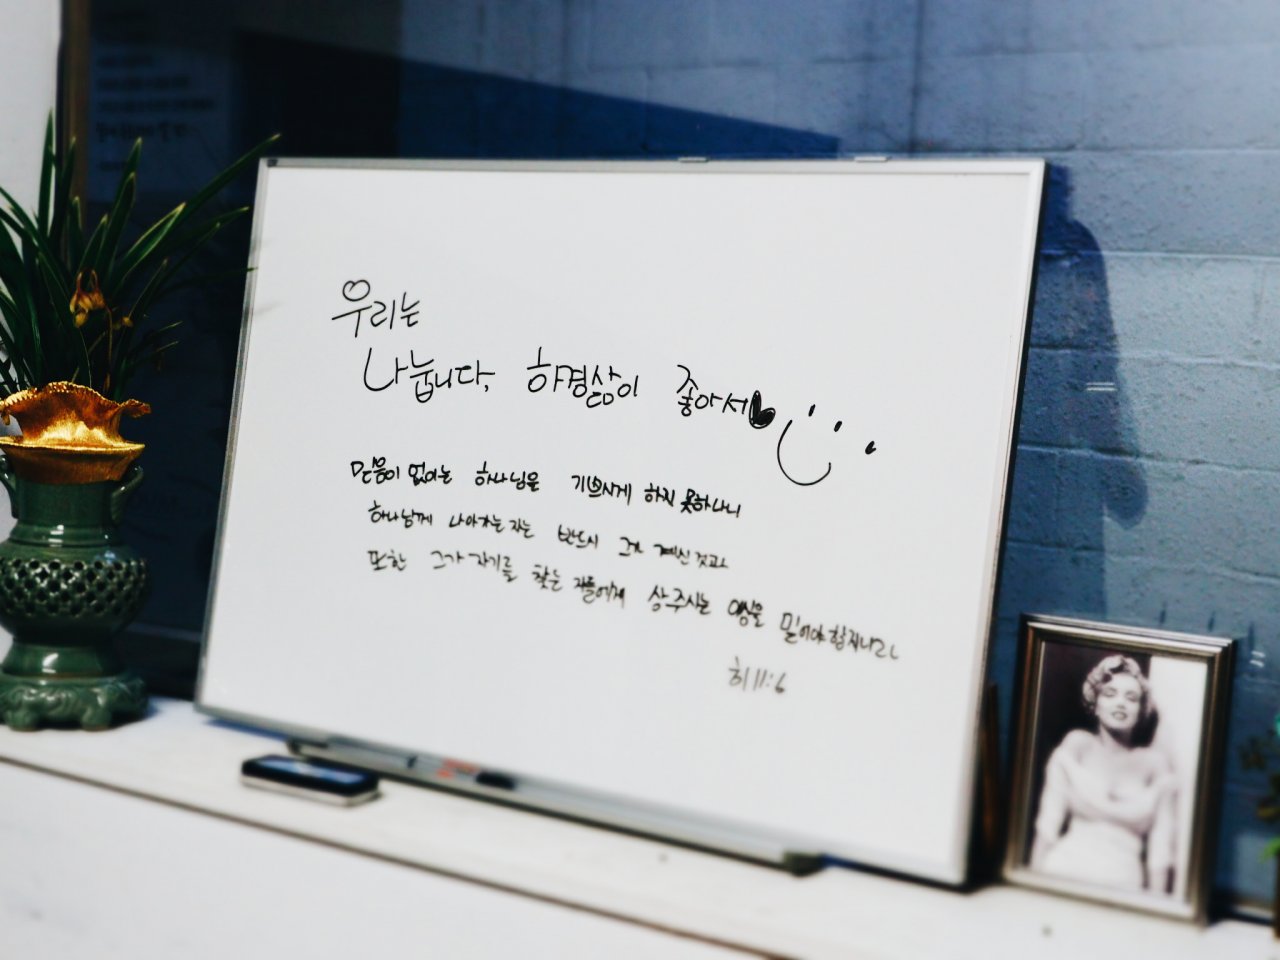 우리는
나눕니다, 하경삶이 좋아서
믿음이 없이는 하나님을 기쁘시게 하지 못하나니
하나님께 나아가는 자는 반드시 그가 계신 것과
또한 그가 자기를 찾는 자들에게 상주시는 이심을 믿어야 할지니라
히 11:6